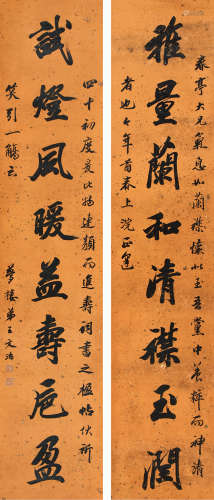 春亭大兄氣息如蘭襟懷比玉吾黨中最粹而神清
雅量蘭和清襟玉潤
者也今年首春上浣正逢
四十初度爰比物連類而進壽詞書之楹帖伏祈
誠燈風暖益壽卮盈
笑引一觴云
夢樓弟王文治